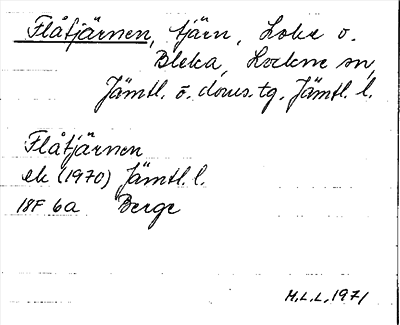 Flåtjärnen, tjärn, Loke o.
Bleka, Lockne sn,
Jämtl. ö. doms.tg. Jämtl. l.
Flåtjärnen
ek (1970) Jämtl. l.
18F 6a Berge
H.L.L. 1971